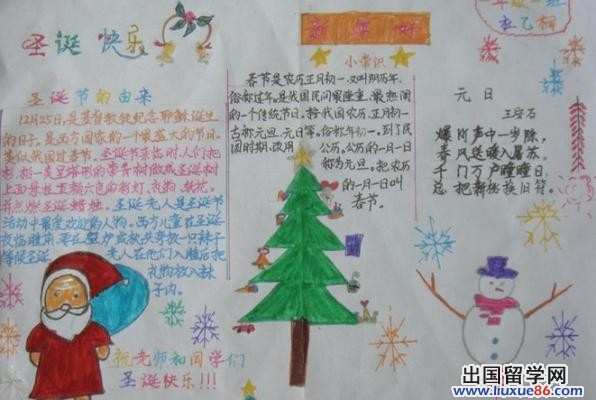 圣诞 快乐
圣诞节的由来
12月25日，是基督教徒纪念耶稣诞生
的日子。是西方国家的一个最盛大的节日。
类似我国过春节。圣诞节来临时，人们把
杉、柏一类呈塔形的常青树做成圣诞树
上面悬挂五颜六色的彩灯、礼物、纸花。
并点燃圣诞蜡烛。圣诞老人是圣诞节
活动中最受欢迎的人物。西方儿童在圣诞
夜临睡前，要在壁炉或枕头旁放一只袜子
等候圣诞
老人在他们入睡后把
礼物放入袜
子内。
祝老师和同学们
圣诞快乐!!!
新年好
小常识
春节是农历正月初一，又叫阴历年，
俗称过年。是我国民间最隆重、最热闹
的一个传统节日。按我国农历，正月初一
古称元旦、元日等。俗称年初一。到了民
国时期，改用
公历，公历的一月一日
称为元旦。把农历
的一月一日叫
春节。
一年级一班
元日
王安石
爆竹声中一岁除，
春风送暖入屠苏。
千门万户曈曈日，
总把新桃换旧符。
出国留学网
www.liuxue86.com